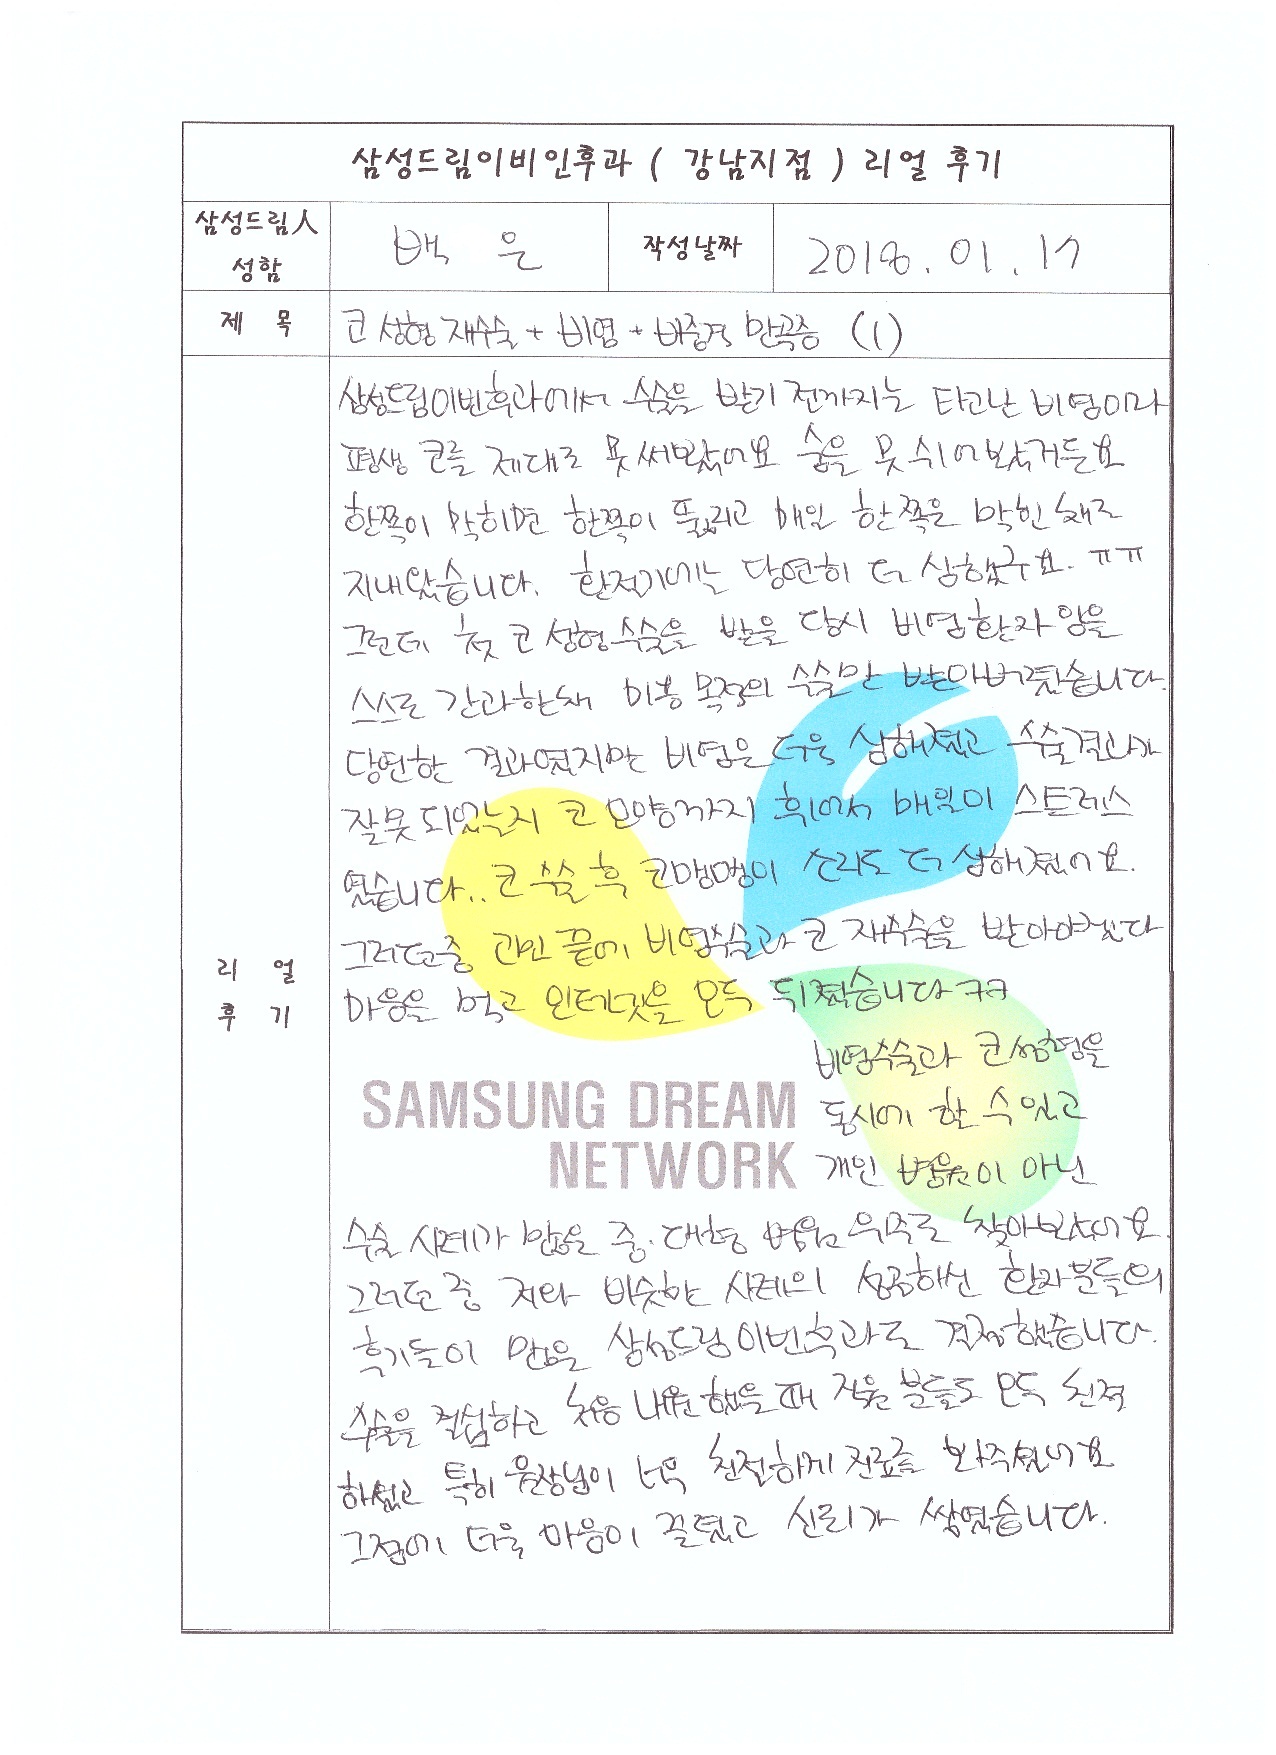 삼성드림이비인후과 ( 강남지점 ) 리얼 후기
삼성드림人
성함
백 은
작성날짜
2018. 01. 17
제 목
코 성형 재수술 + 비염 + 비중격 만곡증 (1)
삼성드림이빈후과에서 수술을 받기 전까지는 타고난 비염이라
평생 코를 제대로 못써봤어요 숨을 못 쉬어봤거든요
한쪽이 막히면 한쪽이 뚫리고 매일 한쪽은 막힌 채로
지내왔습니다. 환절기에는 당연히 더 심했구요. ㅠㅠ
그런데 첫 코 성형수술을 받을 당시 비염환자임을
스스로 간과한채 미용 목적의 수술만 받아버렸습니다.
당연한 결과였지만 비염은 더욱 심해졌고 수술결과가
잘못되었는지 코 모양까지 휘어서 매일이 스트레스
였습니다.. 코 수술 후 코맹맹이 소리도 더 심해졌어요.
그러던중 고민 끝에 비염수술과 코 재수술을 받아야겠다
마음을 먹고 인터넷을 모두 뒤졌습니다 ㅋㅋ
비염수술과 코성형을
동시에 할 수 있고
개인 병원이 아닌
SAMSUNG DREAM
NETWORK
수술 사례가 많은 중.대형 병원 위주로 찾아봤어요.
그러던 중 저와 비슷한 사례의 성공하신 환자분들의
후기들이 많은 삼성드림이빈후과로 결정했습니다.
수술을 결심하고 처음 내원 했을때 직원 분들도 모두 친절
하셨고 특히 원장님이 너무 친절하게 진료를 봐주셨어요
그점에 더욱 마음이 끌렸고 신뢰가 쌓였습니다.
리 얼
후 기